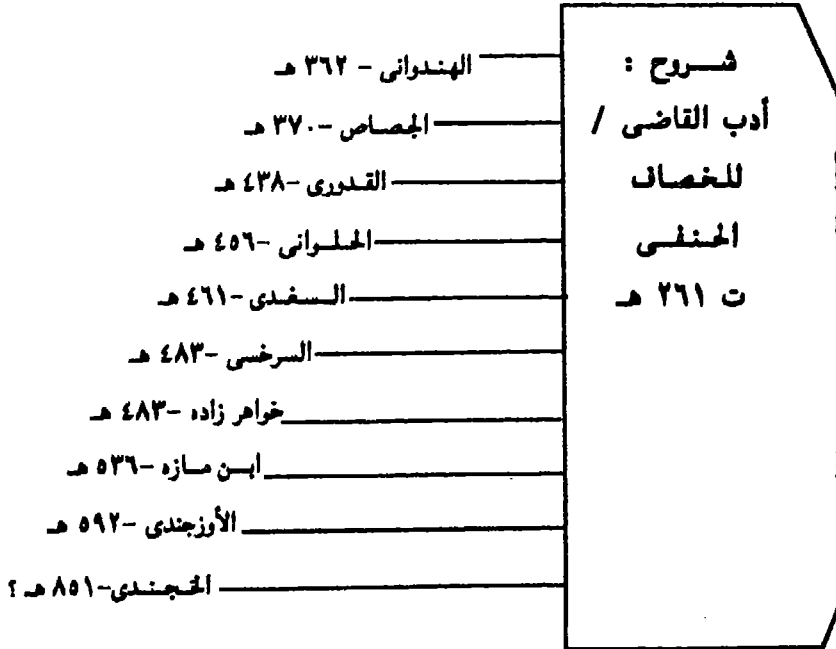 شروح :
أدب القاضى /
للخصاف
الحنفى
ت ٢٦١ هـ
الهندوانى - ٣٦٢ هـ
الجصاص -٣٧٠ هـ
القدورى -٤٣٨ هـ
الحلوانى -٤٥٦ هـ
السغدى -٤٦١ هـ
السرخسى -٤٨٣ هـ
خواهر زاده -٤٨٣ هـ
ابن مازه -٥٣٦ هـ
الأوزجندى -٥٩٢ هـ
الخجندى-٨٥١ هـ ؟